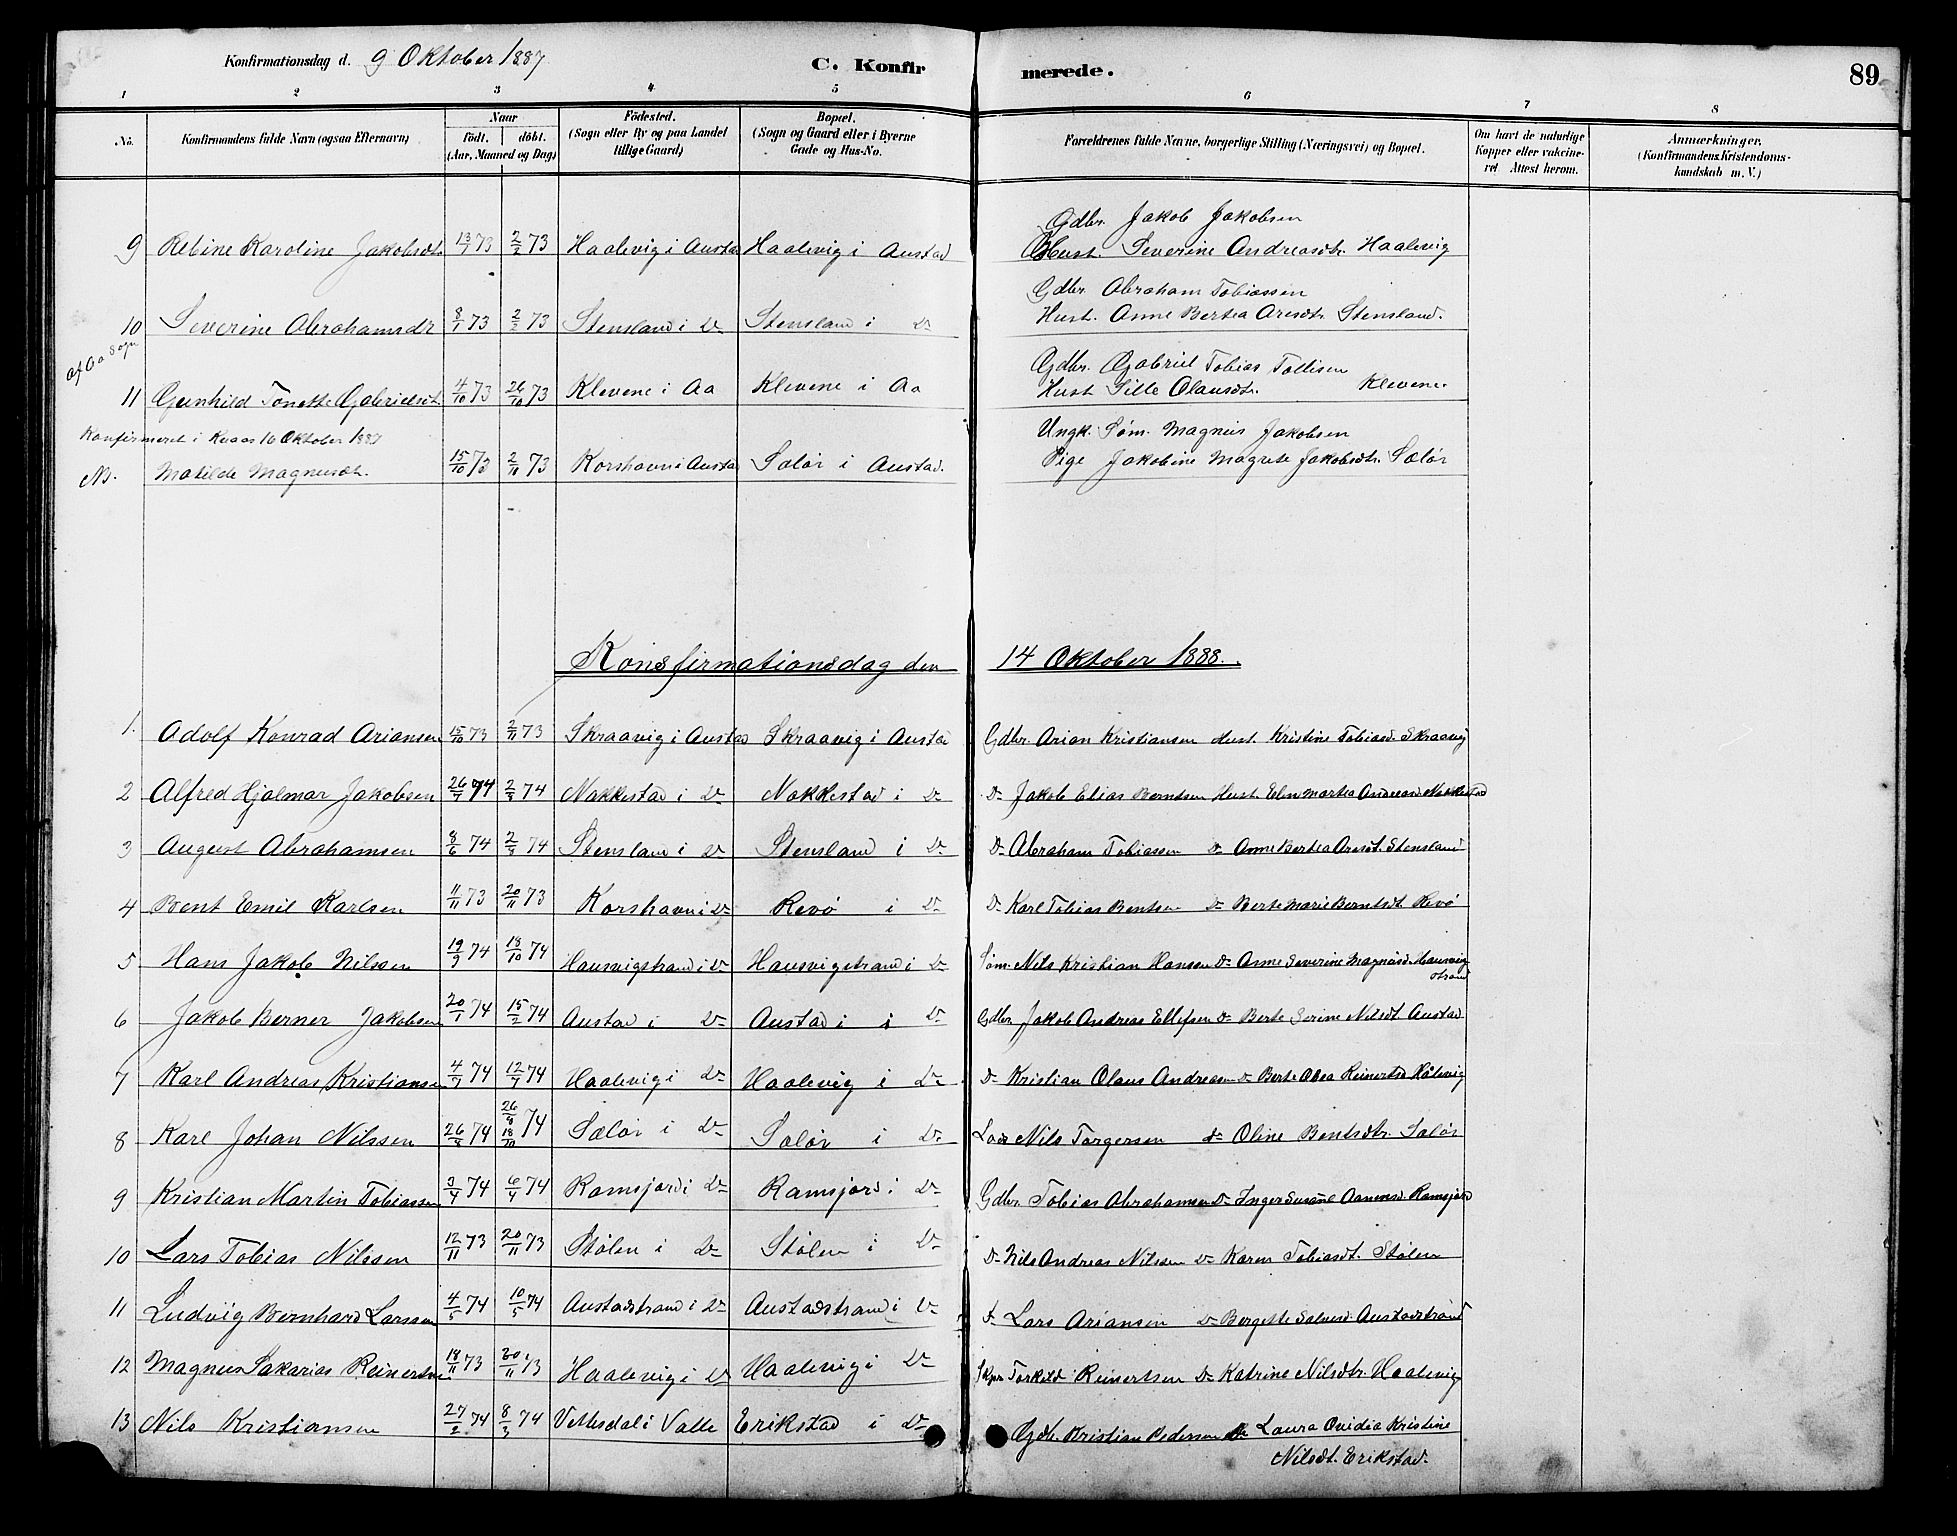 Konfirmationsdag d. 9 Oktober 1887
C. Konfirmerede.
89
1 2 3 4 5 6 7 8
No. Konfirmandens fulde Navn (ogsaa Efternavn) Naar födt. döbt. (Aar, Maaned og Dag) Födested. (Sogn eller By og paa Landet tillige Gaard) Bopæl. (Sogn og Gaard eller i Byerne Gade og Hus-No. Forældrenes fulde Navne, borgerlige Stilling (Næringsvei) og Bopæl. Om havt de naturlige Kopper eller vakcineret. Attest herom. Anmærkninger. (Konfirmandens Kristendomskundskab m. V.)
Gdbr. Jakob Jakobsen
9 Rebine Karoline Jakobsdt. 13/1 73 2/2 73 Haalevig i Austad Haalevig i Austad Hust. Severine Andreasdtr. Haalevig
Gdbr. Abraham Tobiassen
10 Severine Abrahamsdr 8/1 73 2/2 73 Stensland i Do Stensland i Do Hust. Anne Bertea Aresdtr. Stensland.
af Aa Sogn
Gdbr. Gabriel Tobias Tollisen
11 Gunhild Tonette Gabrielsdt. 4/10 73 26/10 73 Klevene i Aa Klevene i Aa Hust Sille Olausdtr. Klevene
Konfirmeret i Kvaas 16 Oktober 1887
Ungk. Søm. Magnus Jakobsen
N. Matilde Magnusdt. 15/10 73 2/11 73 Korshavn i Austad Sælør i Austad. Pige Jakobine Magrete Jakobsdtr. Sælør
Konsfirmationsdag den 14 Oktober 1888.
1. Adolf Konrad Ariansen 15/10 73 2/11 73 Skraavig i Austad Skraavig i Austad Gdbr. Arian Kristiansen Hust. Kristine Tobiasd. Skraavig
2 Alfred Hjalmar Jakobsen 26/7 74 2/8 74 Nakkestad i Do Nakkestad i Do Do Jakob Elias Berntsen Hust. Elen Martea Andreasd. Nakkestad
3 August Abrahamsen 8/6 74 2/8 74 Stensland i Do Stensland i Do Do Abraham Tobiassen Do Anne Bertea Aresdt. Stensland
4 Bent Emil Karlsen 11/11 73 20/11 73 Korshavn i Do Revø i Do Do Karl Tobias Bentsen Do Berte Marie Berntsdt. Revø
5 Hans Jakob Nilsen 19/9 74 18/10 74 Hausvigstrand i Do Hausvigstrand i Do Søm. Nils Kristian Hansen Do Anne Severine Magnusd. Hausvigstrand
6 Jakob Berner Jakobsen 20/1 74 15/2 74 Austad i Do Austad i Do Gdbr Jakob Andreas Ellefsen Do Berte Serine Nilsdt Austad
7 Karl Andreas Kristiansen 4/7 74 12/7 74 Haalevig i Do Haalevig i Do Do Kristian Olaus Andreasen Do Berte Reinertsd Hålevig
8 Karl Johan Nilssen 26/8 74 26/9 18/10 74 Sælør i Do Sælør i Do Lods Nils Torgersen do Oline Bentsdtr. Sælør
9 Kristian Martin Tobiassen 3/4 74 6/4 74 Ramsjord i Do Ramsjord i Do Gdbr. Tobias Abrahamsen Do Inger Susane Aanensd. Ramsjord
10 Lars Tobias Nilssen 12/11 73 20/11 73 Stølen i Do Stølen i Do Do Nils Andreas Nilssen Do Karen Tobiasdt. Stølen
11 Ludvig Bernhard Larssen 4/5 74 10/5 74 Austadstrand i Do Austadstrand i Do Do Lars Ariansen Do Bergette Salvesd. Austadstrand
12 Magnus Sakarias Reinertsen 18/11 73 30/11 73 Haalevig i Do Haalevig i Do Skpr Torkild Reinertsen Do Katrine Nilsdtr. Haalevig
13 Nils Kristiansen 27/2 74 8/3 74 Vettesdal i Valle Erikstad i Do Gdb. Kristian Pedersen Do Laura Ovidia Kristine
Nilsdt. Erikstad.